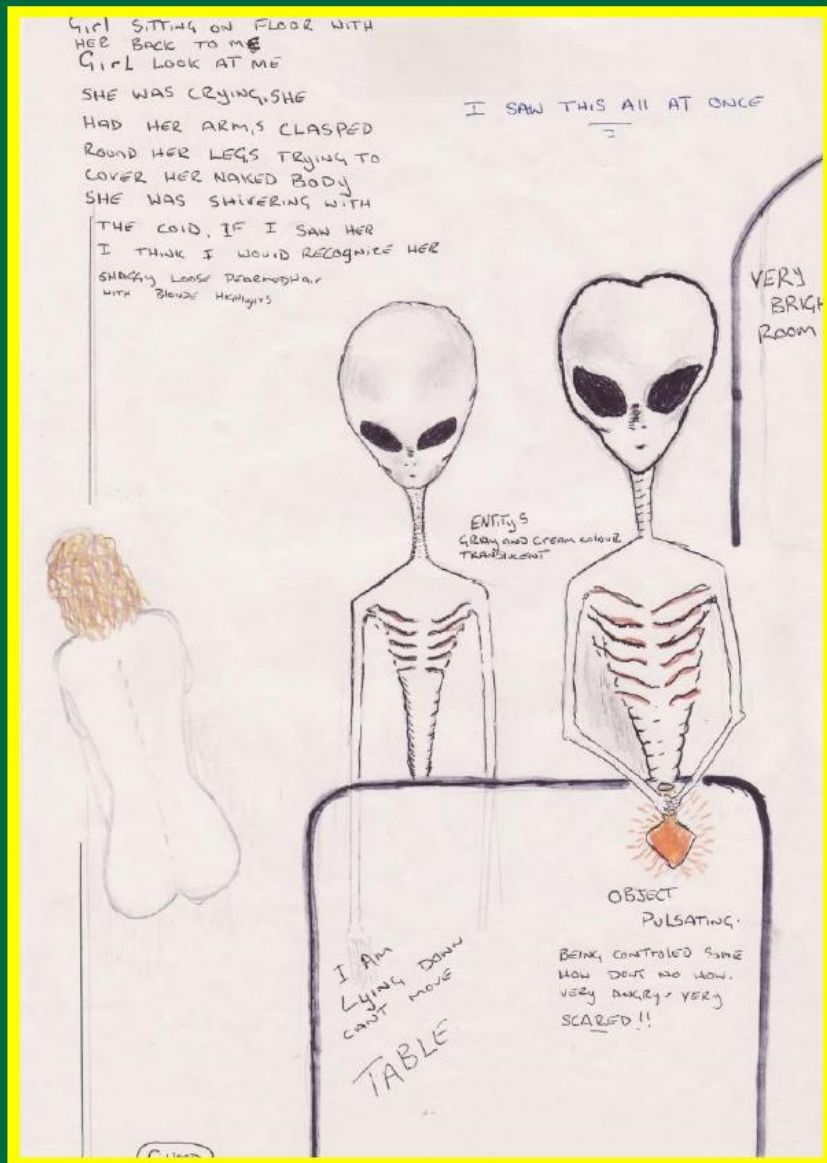 Girl SITTING ON FLOOR WITH
HER BACK TO ME
GirL LOOK AT ME
SHE WAS CRYING, SHE
HAD HER ARM,S CLASPED
ROUND HER LEGS TRYING TO
COVER HER NAKED BODY
SHE WAS SHIVERING WITH
THE COlD, IF I SAW HER
I THINK I WOUlD RECOGNIZE HER
SHAGGY LOOSE PEARMEDHair
WITH BlONDE HIGHlIgHTS
I SAW THIS All AT ONCE
VERY
BRIGH
ROOM
ENTITYS
GRAY AND CREAM COlOUR
TRANSlUCENT
OBJECT
PULSATING.
BEING CONTROLED SOME
HOW DONT NO HOW.
VERY ANGRY. VERY
SCARED!!
I AM
LYING DOWN
CANT MOVE
TABLE